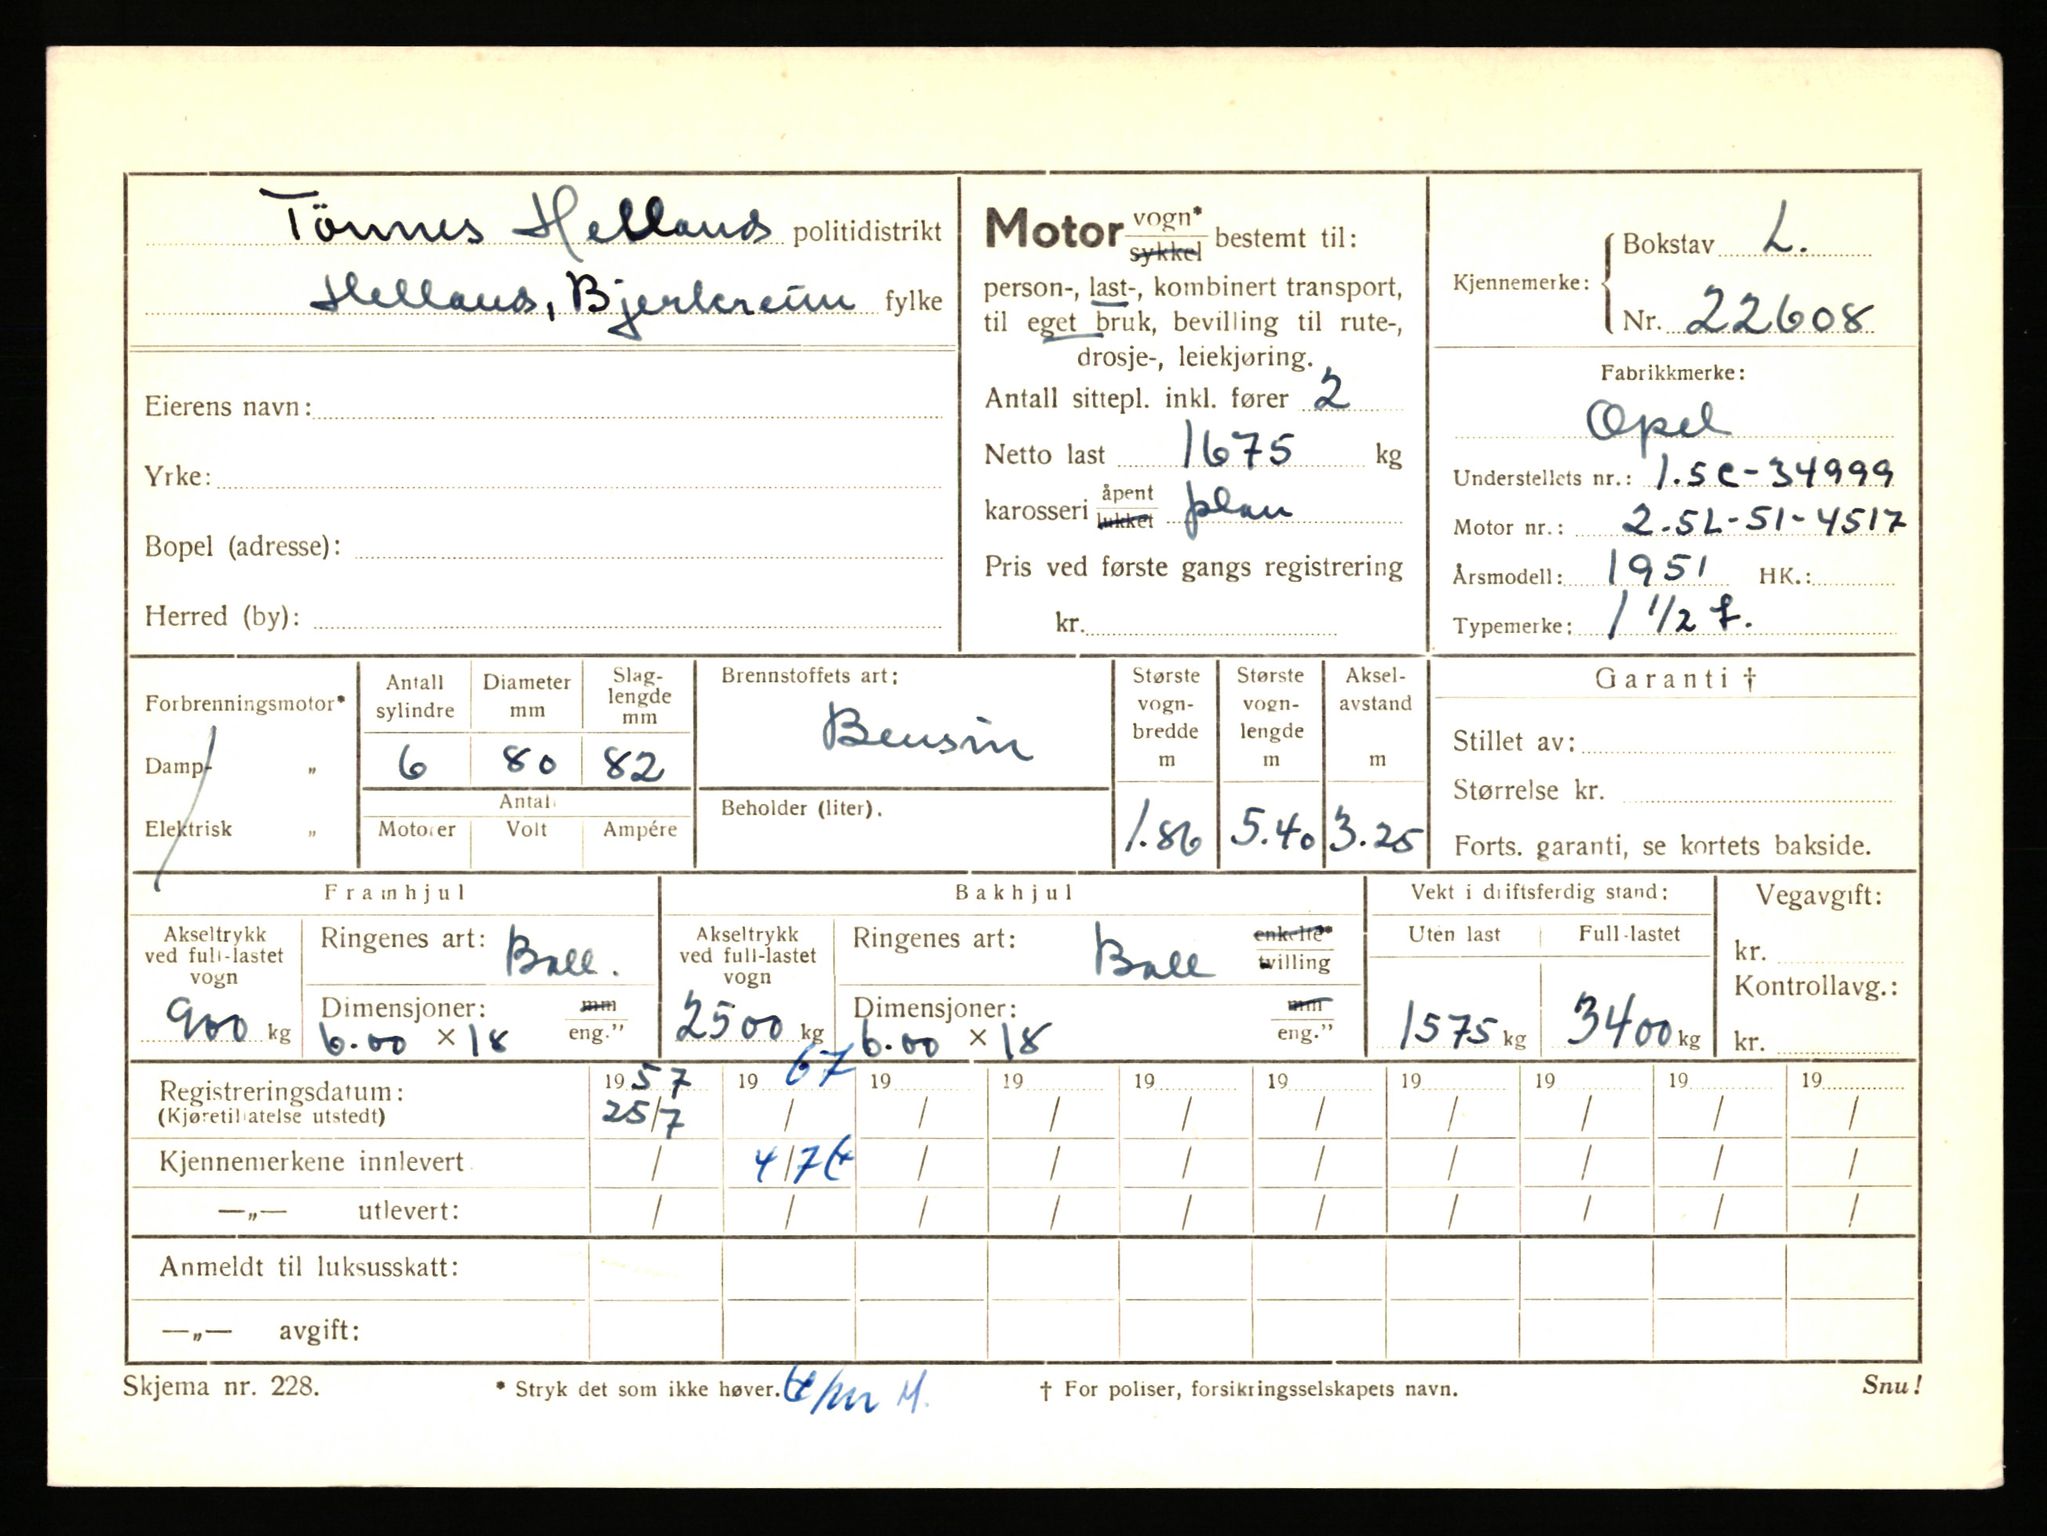 Tönnes Helland politidistrikt
Helland, Bjerkreim fylke
Eierens navn:
Yrke:
Bopel (adresse):
Herred (by):
Motor vogn* sykkel bestemt til:
person-, last-, kombinert transport,
til eget bruk, bevilling til rute-,
drosje-, leiekjøring.
Antall sittepl. inkl. fører 2
Netto last 1675 kg
karosseri åpent lukket plan
Pris ved første gangs registrering
kr.
Kjennemerke: Bokstav L.
Nr. 22608
Fabrikkmerke:
Opel
Understellets nr.: 1.5C-34999
Motor nr.: 2.5L-51-4517
Årsmodell: 1951 HK.:
Typemerke: 1 1/2 t.
Forbrenningsmotor*
Damp- „
Elektrisk „
Antall sylindre Diameter mm Slag-lengde mm
6 80 82
Antall
Motorer Volt Ampére
Brennstoffets art:
Bensin
Beholder (liter).
Største vogn-bredde m Største vogn-lengde m Aksel-avstand m
1.86 5.40 3.25
Garanti †
Stillet av:
Størrelse kr.
Forts. garanti, se kortets bakside.
Framhjul
Akseltrykk ved full-lastet vogn
900 kg
Ringenes art: Ball.
Dimensjoner: mm
6.00 × 18 eng."
Bakhjul
Akseltrykk ved full-lastet vogn
2500 kg
Ringenes art: Ball enkelte* tvilling
Dimensjoner: mm
6.00 × 18 eng."
Vekt i driftsferdig stand:
Uten last Full-lastet
1575 kg 3400 kg
Vegavgift:
kr.
Kontrollavg.:
kr.
Registreringsdatum: 1957 1967 19 19 19 19 19 19 19 19
(Kjøretillatelse utstedt) 25/7 / / / / / / / / /
Kjennemerkene innlevert / 4/7 / / / / / / / /
—„— utlevert: / / / / / / / / / /
Anmeldt til luksusskatt:
—„— avgift:
Skjema nr. 228. * Stryk det som ikke høver. † For poliser, forsikringsselskapets navn. Snu!